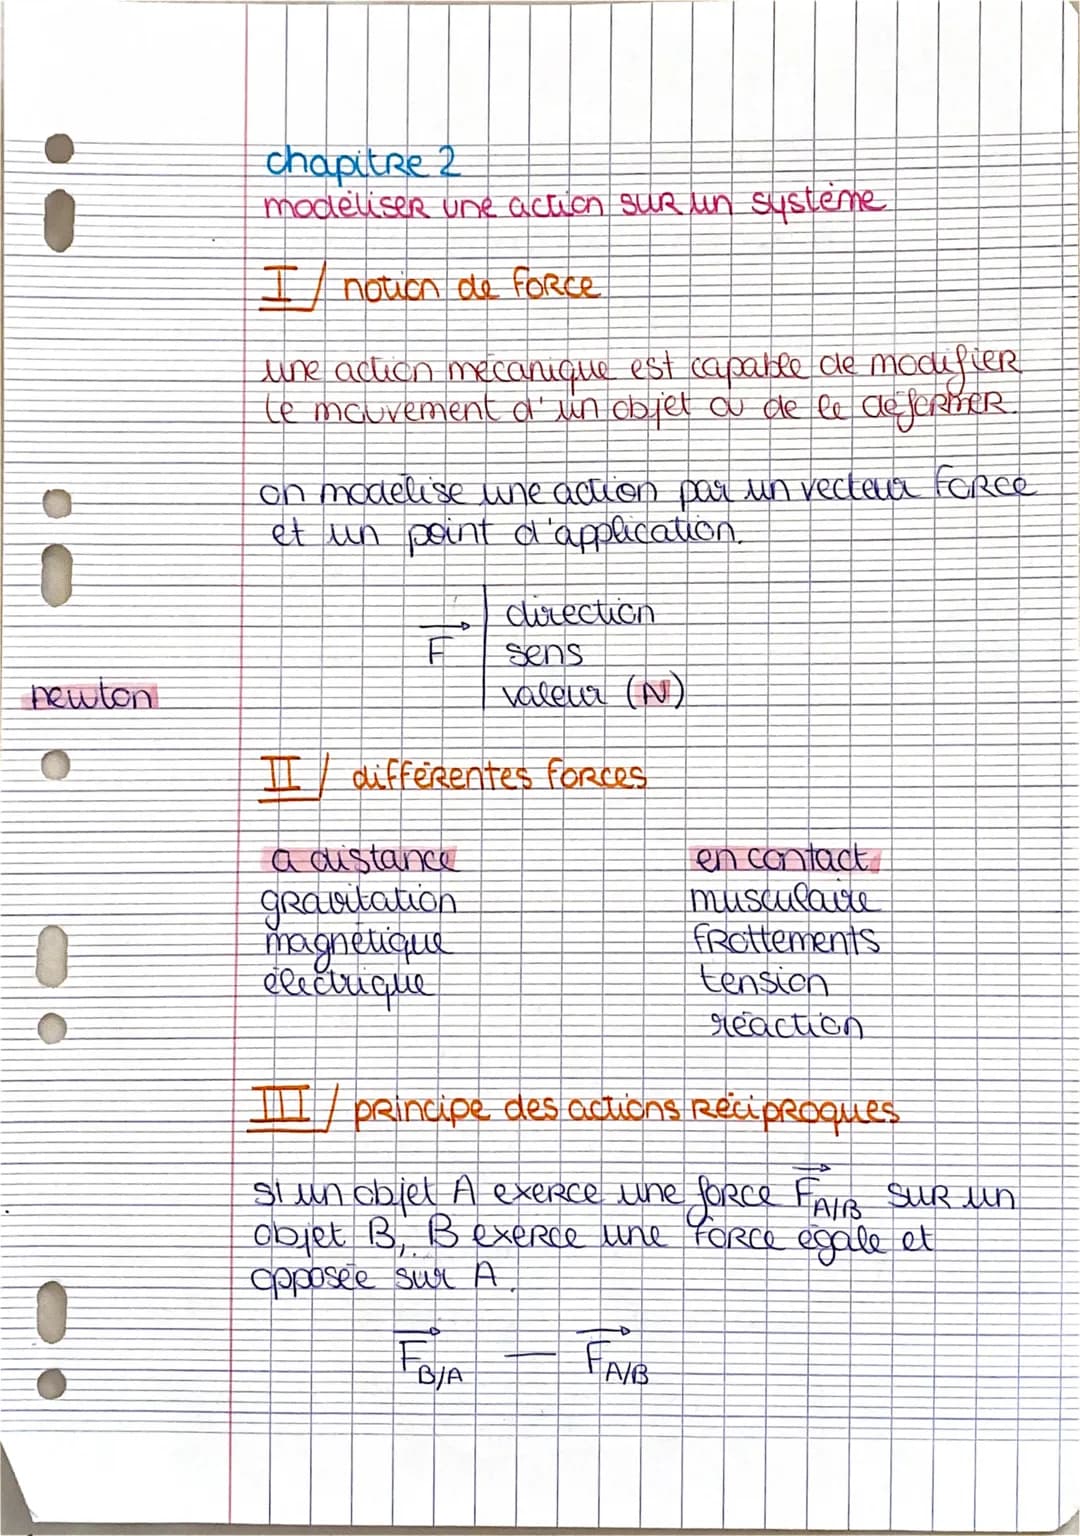 chapitre 2
modéliser une action sur un système
I / notion de force
une action mécanique est capable de modifier
le mouvement d'un objet ou de le déformer.
on modélise une action par un vecteur force
et un point d'application.
F→ | direction
sens
newton valeur (N)
II / différentes forces
a distance en contact
gravitation musculaire
magnétique frottements
électrique tension
réaction
III / principe des actions réciproques
si un objet A exerce une force F→ A/B sur un
objet B, B exerce une force égale et
opposée sur A.
F→ B/A — F→ A/B